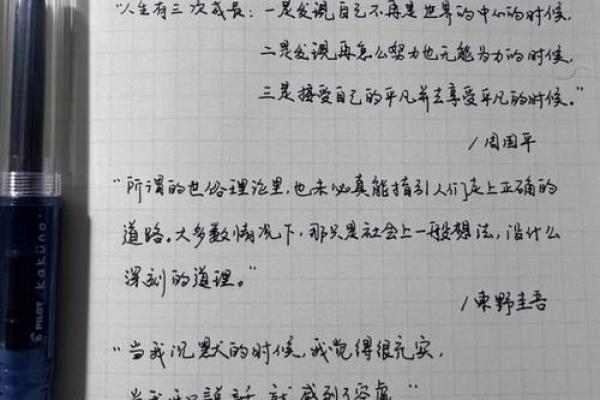 "人生有三次成长：一是发现自己不再是世界的中心的时候，
二是发现再怎么努力也无能为力的时候，
三是接受自己的平凡并去享受平凡的时候。"
/周国平
"所谓的世俗理论里，也未必真能指引人们走上正确的
道路。大多数情况下，那只是社会上一般想法，没什么
深刻的道理。"
/東野圭吾
"当我沉默的时候，我觉得很充实，
當我開口說話，就感到了空虚。"
PILOT kaküno